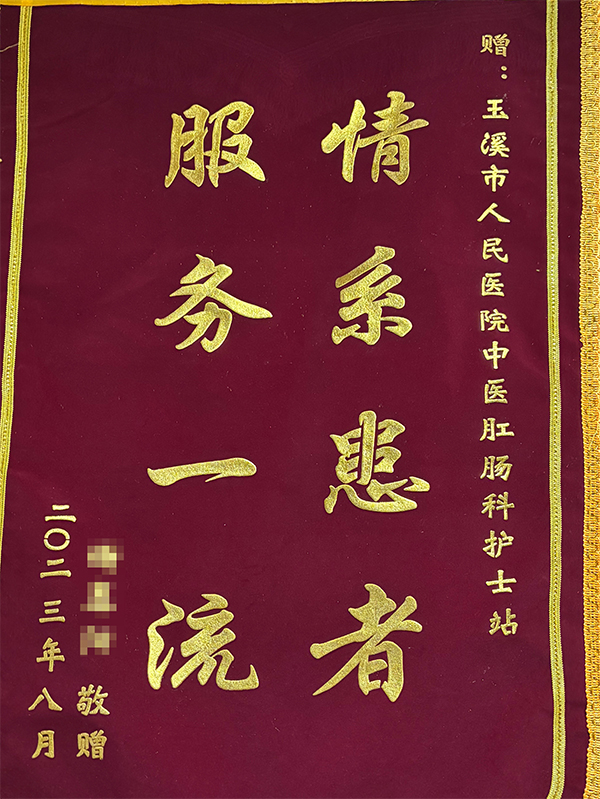 赠：玉溪市人民医院中医肛肠科护士站
情系患者
服务一流
敬赠
二〇二三年八月